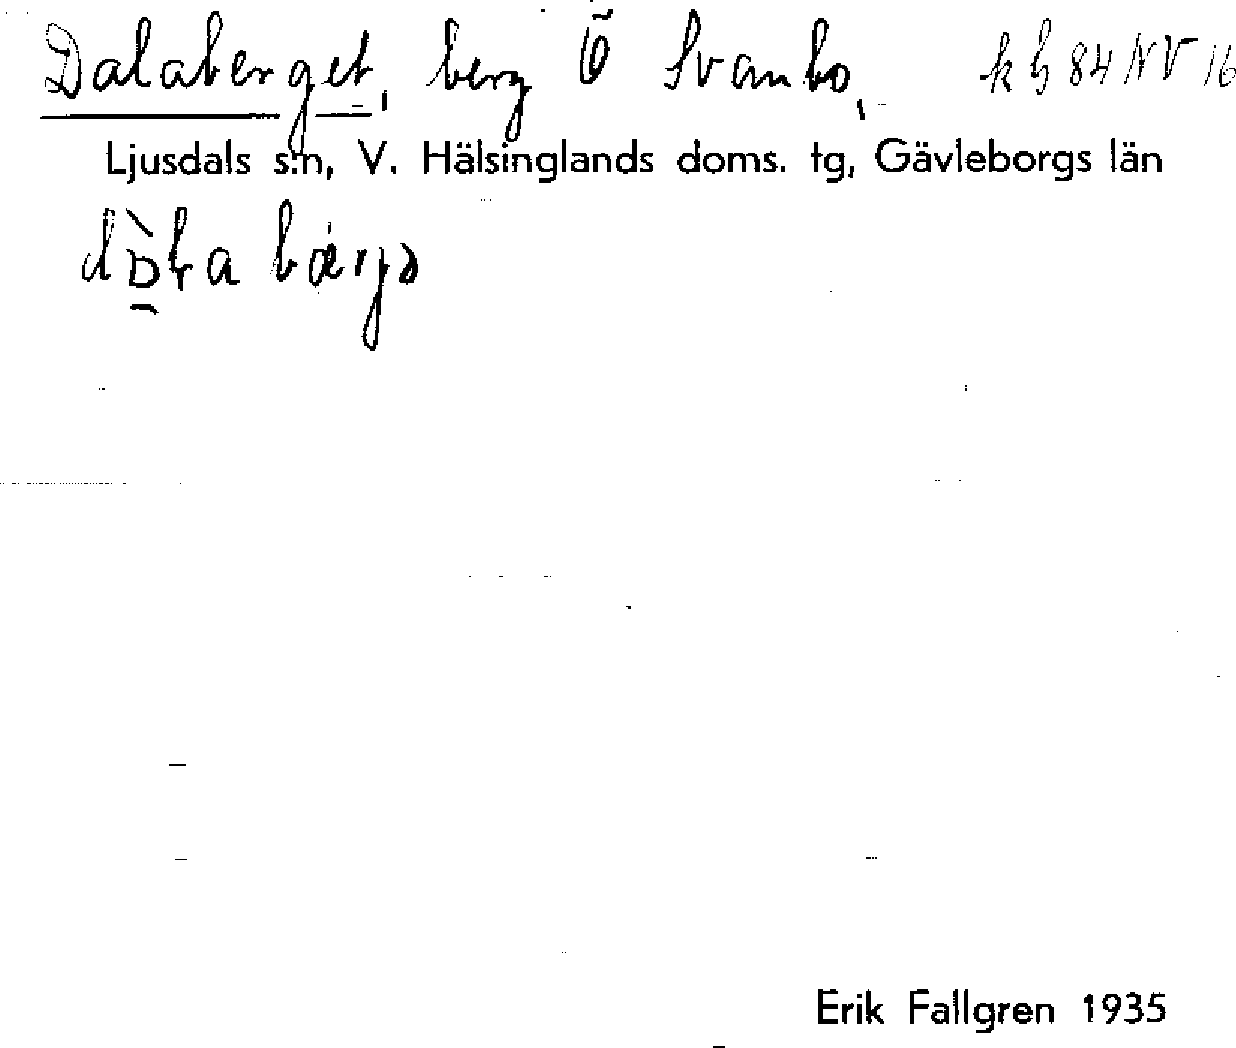 Dalaberget, berg Ö Svanbo, kb 84 NV 16
Ljusdals s:n, V. Hälsinglands doms. tg, Gävleborgs län
Erik Fallgren 1935